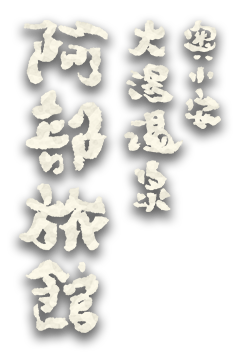 奥小安
大湯温泉
阿部旅館